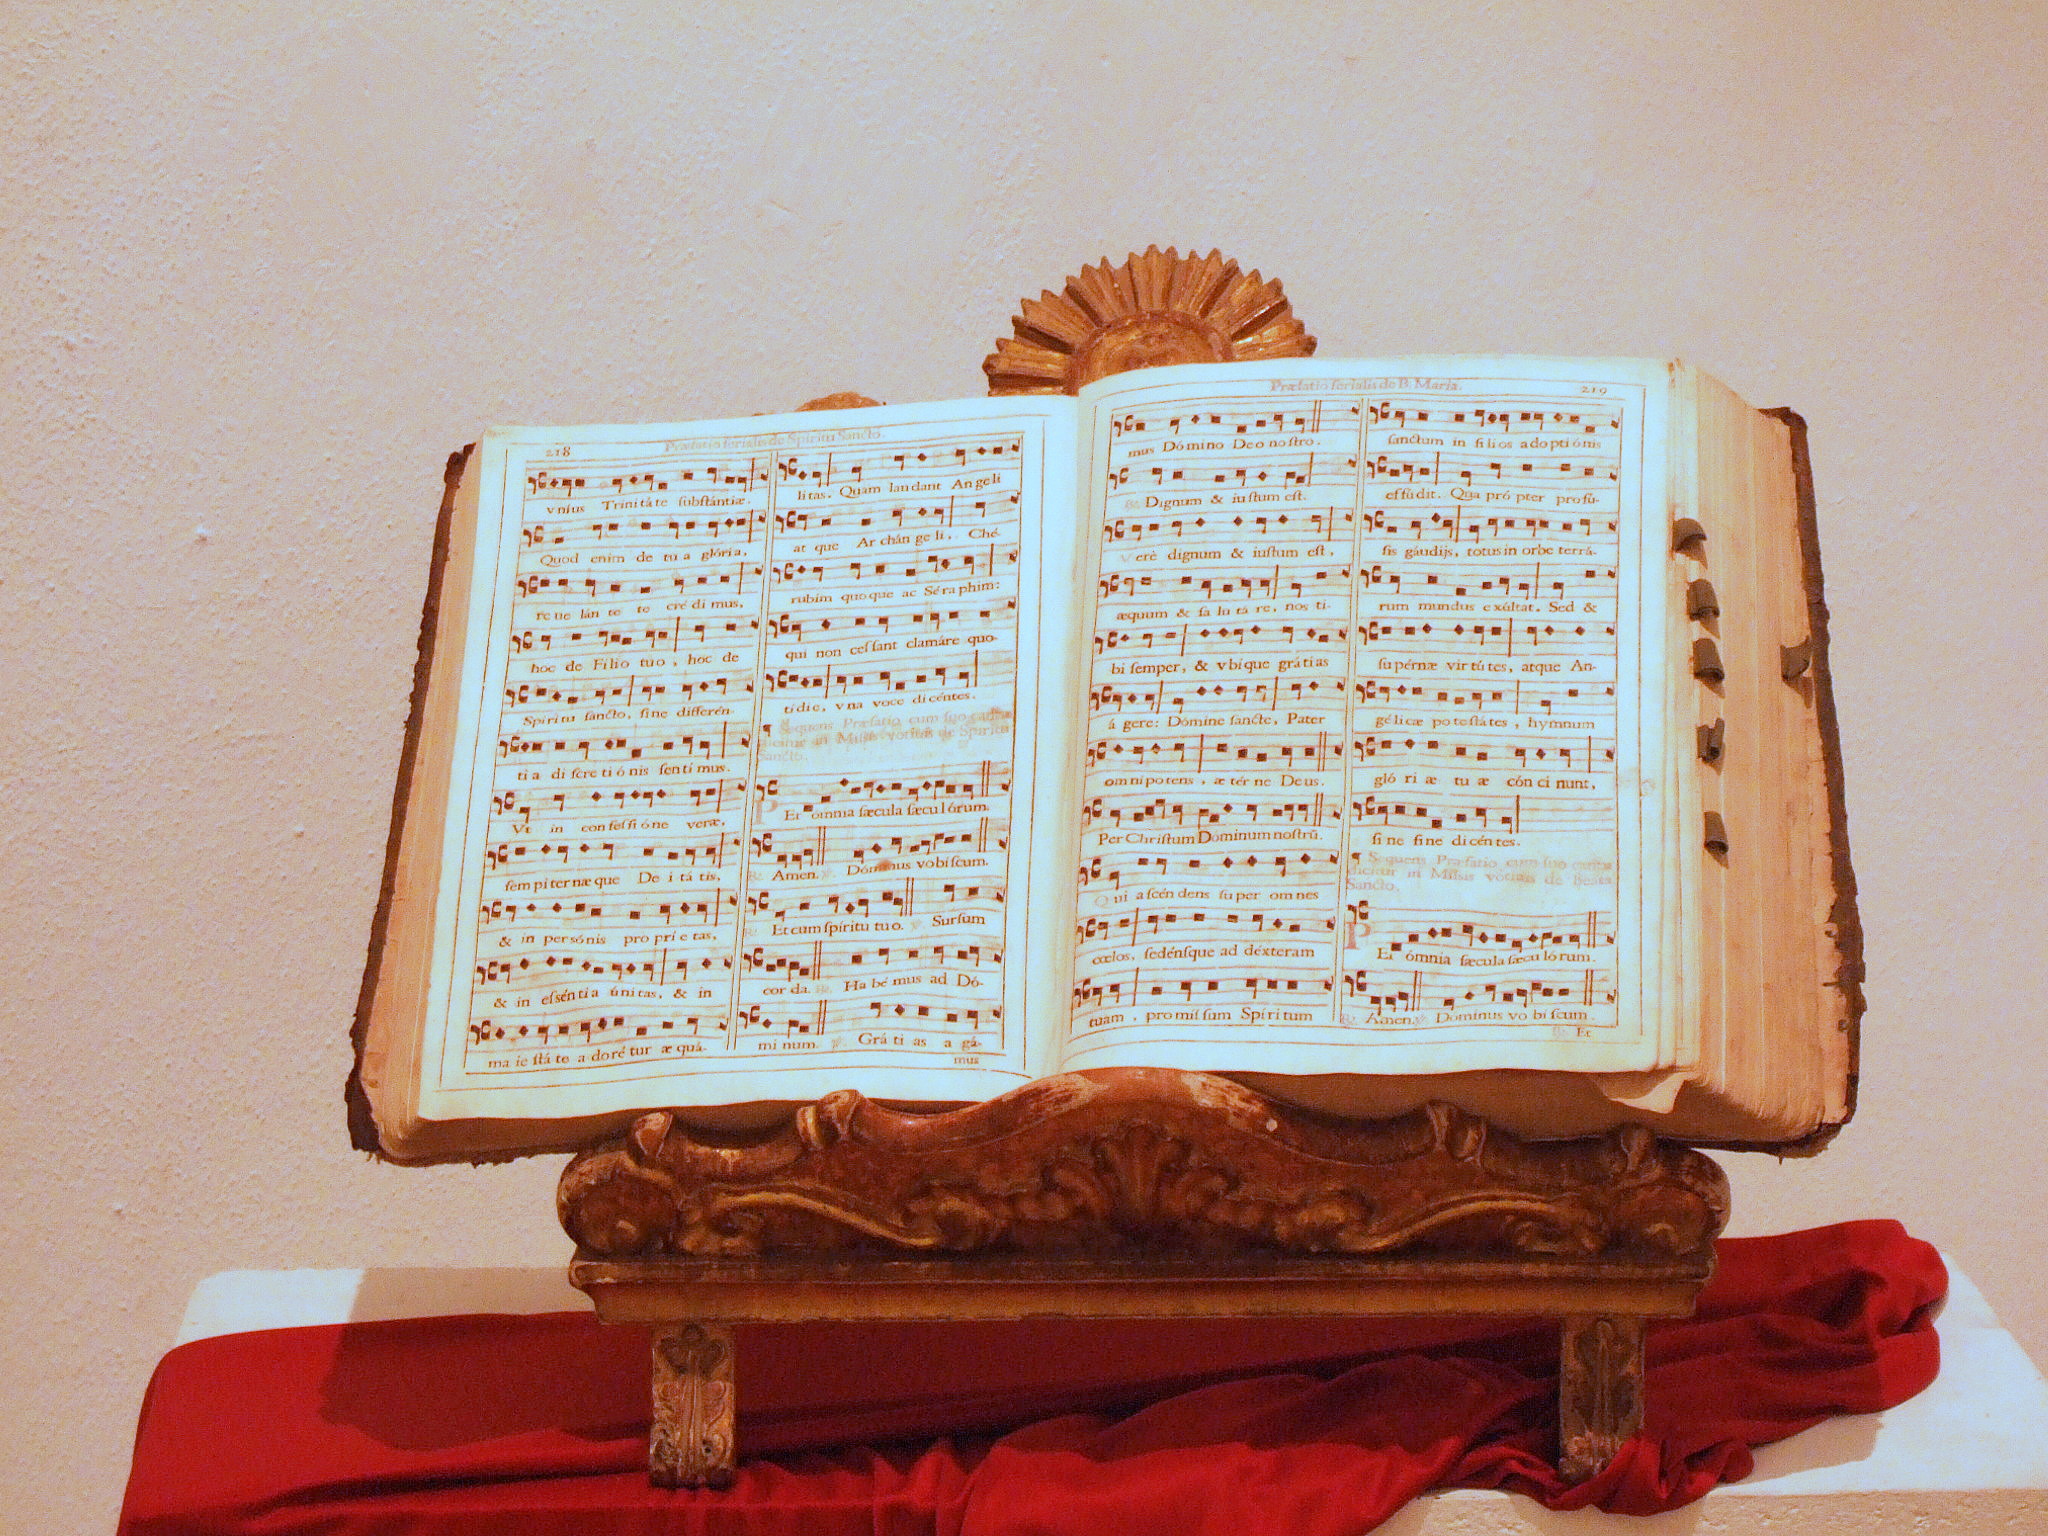 218
Præfatio ferialis de Spiritu Sancto.
vníus Trinitáte substántiæ.
Quod enim de tua glória,
reuelánte te crédimus,
hoc de Filio tuo, hoc de
Spíritu sancto, sine differén-
tia discretiónis sentimus.
Vt in confessióne veræ,
sempiternæque Deitátis,
& in persónis propríetas,
& in esséntia únitas, & in
maiestáte adorétur æquá-
litas. Quam laudant Angeli
atque Archángeli, Ché-
rubim quoque ac Séraphim:
qui non cessant clamáre quo-
tídie, vna voce dicéntes.
¶ Sequens Præfatio cum suo cantu
dicitur in Missis votiuis de Spiritu
Sancto.
PEr omnia sæcula sæculórum.
℟. Amen. ℣. Dóminus vobiscum.
℟. Et cum spíritu tuo. ℣. Sursum
corda. ℟. Habémus ad Dó-
minum. ℣. Grátias agá-
mus
Præfatio ferialis de B. Maria.
219
mus Dómino Deo nostro.
℟. Dignum & iustum est.
Verè dignum & iustum est,
æquum & salutáre, nos ti-
bi semper, & vbíque grátias
ágere: Dómine sancte, Pater
omnípotens, ætérne Deus.
Per Christum Dóminum nostrũ.
Qui ascéndens super omnes
cœlos, sedénsque ad déxteram
tuam, promissum Spíritum
sanctum in fílios adoptiónis
effúdit. Quaprópter profú-
sis gáudijs, totus in orbe terrá-
rum mundus exúltat. Sed &
supérnæ virtútes, atque An-
gélicæ potestátes, hymnum
glóriæ tuæ cóncinunt,
sine fine dicéntes.
¶ Sequens Præfatio cum suo cantu
dicitur in Missis votiuis de Beata
Sancto.
PEr ómnia sæcula sæculórum.
℟. Amen. ℣. Dóminus vobiscum.
℟. Et